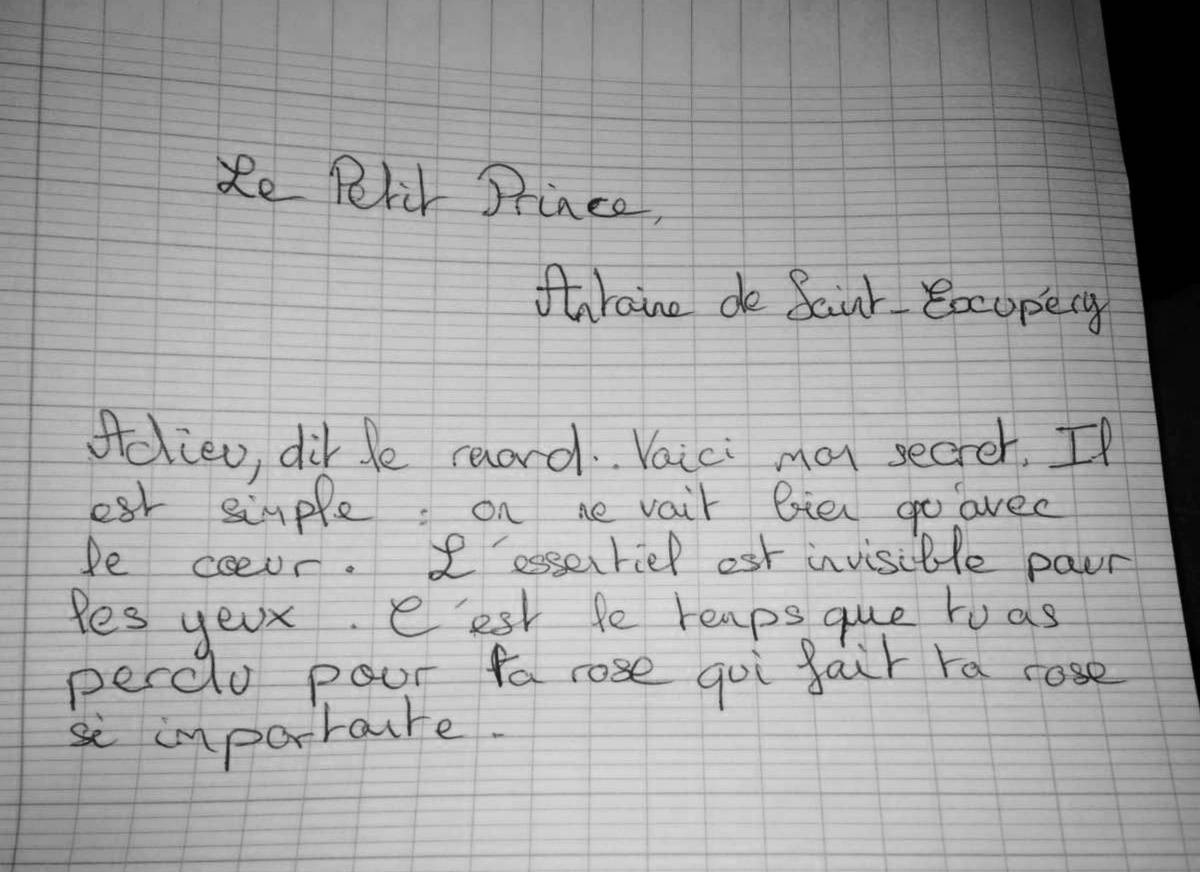 Le Petit Prince,
Antoine de Saint-Exupéry
Adieu, dit le renard.. Voici mon secret. Il
est simple : on ne voit bien qu'avec
le cœur. L'essentiel est invisible pour
les yeux. C'est le temps que tu as
perdu pour ta rose qui fait ta rose
si importante.